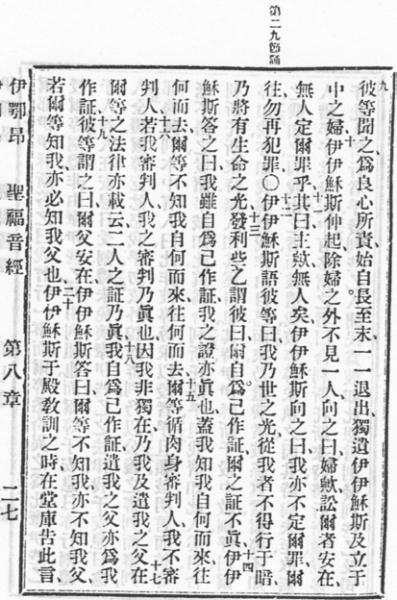 第二九節誦
九彼等聞之爲良心所責始自長至末一一退出獨遺伊伊穌斯及立于
中之婦十伊伊穌斯伸起除婦之外不見一人向之曰婦歟訟爾者安在
無人定爾罪乎十一其曰主歟無人矣伊伊穌斯向之曰我亦不定爾罪爾
往勿再犯罪〇十二伊伊穌斯語彼等曰我乃世之光從我者不得行于暗
乃將有生命之光十三發利些乙謂彼曰爾自爲己作証爾之証不眞十四伊伊
穌斯答之曰我雖自爲己作証我之證亦眞也蓋我知我自何而來往
何而去爾等不知我自何而來往何而去十五爾等循肉身審判人我不審
判人十六若我審判人我之審判乃眞也因我非獨在乃我及遣我之父在十七
爾等之法律亦載云二人之証乃眞十八我自爲己作証遣我之父亦爲我
作証十九彼等謂之曰爾父安在伊伊穌斯答曰爾等不知我亦不知我父
若爾等知我亦必知我父也二十伊伊穌斯于殿教訓之時在堂庫告此言
伊鄂昂 聖福音經 第八章 二七